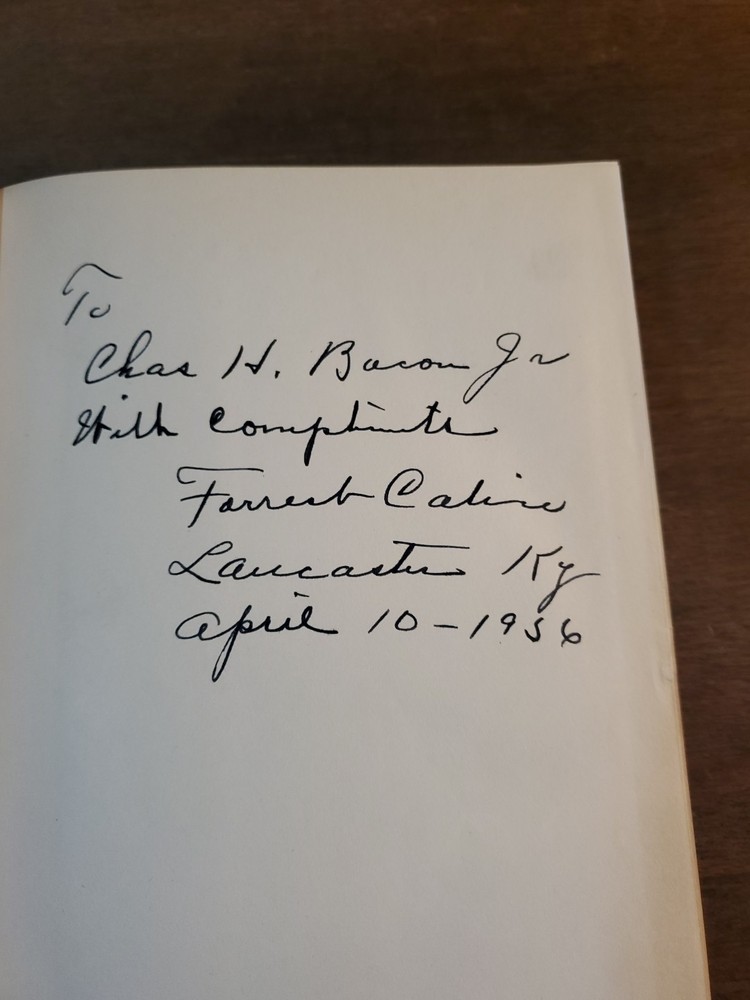 To
Chas H. Bacon Jr
With Compliments
Forrest Calico
Lancaster Ky
April 10-1956